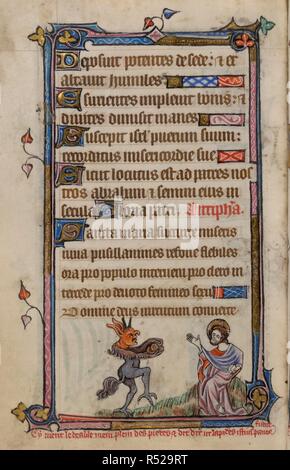 Deposuit potentes de sede: & ex
altavit humiles
Esurientes implevit bonis: &
divites dimisit inanes
Suscepit isrl puerum suum:
recordatus misericordie sue
Sicut locutus est ad patres nos
tros abraham & semini eius in
secula Gloria patri. Antipha.
Sancta maria succurre miseris
iuva pusillanimes refove flebiles
ora pro populo interveni pro clero in
tercede pro devoto femineo sexu
Domine deus virtutum converte
Cy vient le deable
alamy
R529RT